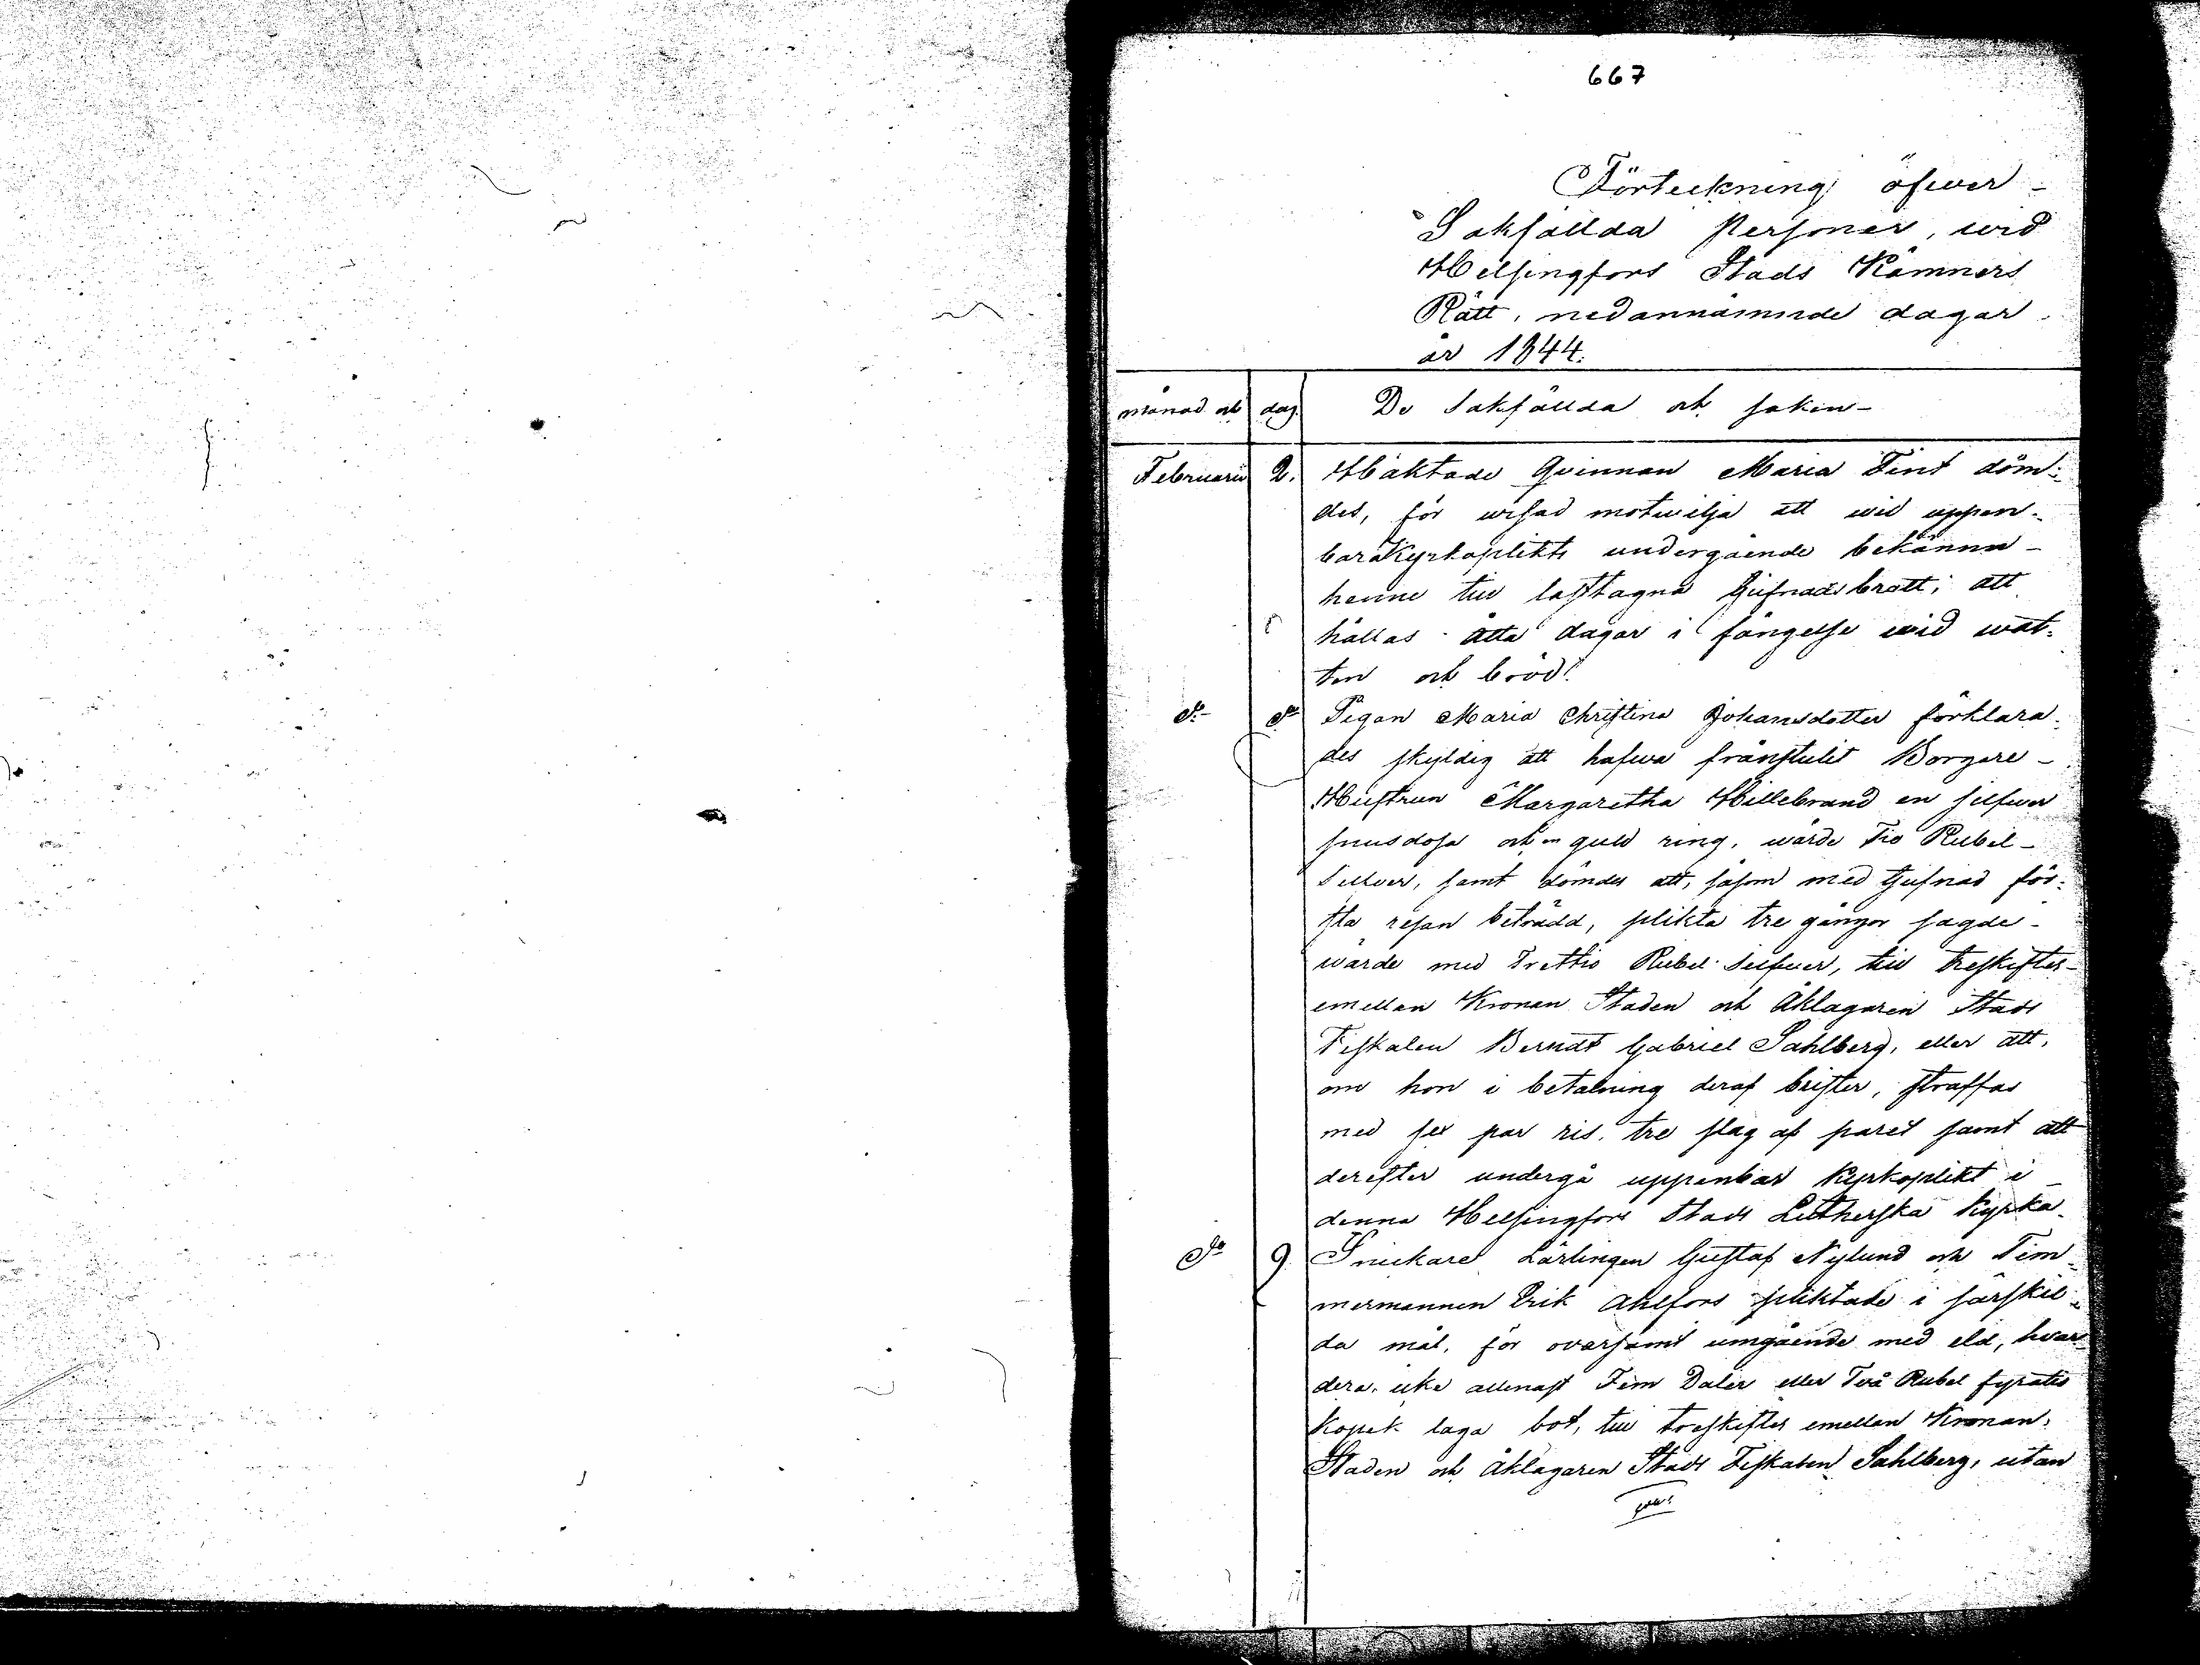 667
Förteckning öfwer -
Sakfällda Personer, wid
Helsingfors Stads Kämners
Rätt, nedannämnde dagar
år 1844.
månad och dag. De Sakfällda och saken -
Februarii 2. Häktade Qvinnan Maria Fint döm-
des, för wisad motwilja att wid uppen-
bara Kyrkoplikts undergående bekänna -
henne till lasttagna tjufnadsbrott, att
hållas åtta dagar i fängelse wid wat-
ten och bröd.
do do Pigan Maria Christina Johansdotter förklara-
des skyldig att hafwa frånstulit Borgare -
Hustrun Margaretha Hillebrand en silfwer
snusdosa och en guld ring, wärde Tio Rubel -
Silfwer, samt dömdes att, såsom med tjufnad för-
sta resan beträdd, plikta tre gånger sagde -
wärde med Trettio Rubel Silfwer, till treskiftes -
emellan Kronan Staden och Åklagaren Stads
Fiskalen Berndt Gabriel Sahlberg, eller att,
om hon i betalning deraf brister, straffas
med sex par ris, tre slag af paret samt att
derefter undergå uppenbar Kyrkoplikt i -
denna Helsingfors Stads Lutherska Kyrka.
do 9. Snickare Lärlingen Gustaf Nylund och Tim-
mermannen Erik Ahlfors pliktade i särskil-
da mål, för ovarsamt umgående med eld, hvar-
dera, icke allenast Fem Daler eller Två Rubel fyratio
Kopek laga bot, till treskiftes emellan Kronan,
Staden och Åklagaren Stads Fiskalen Sahlberg, utan